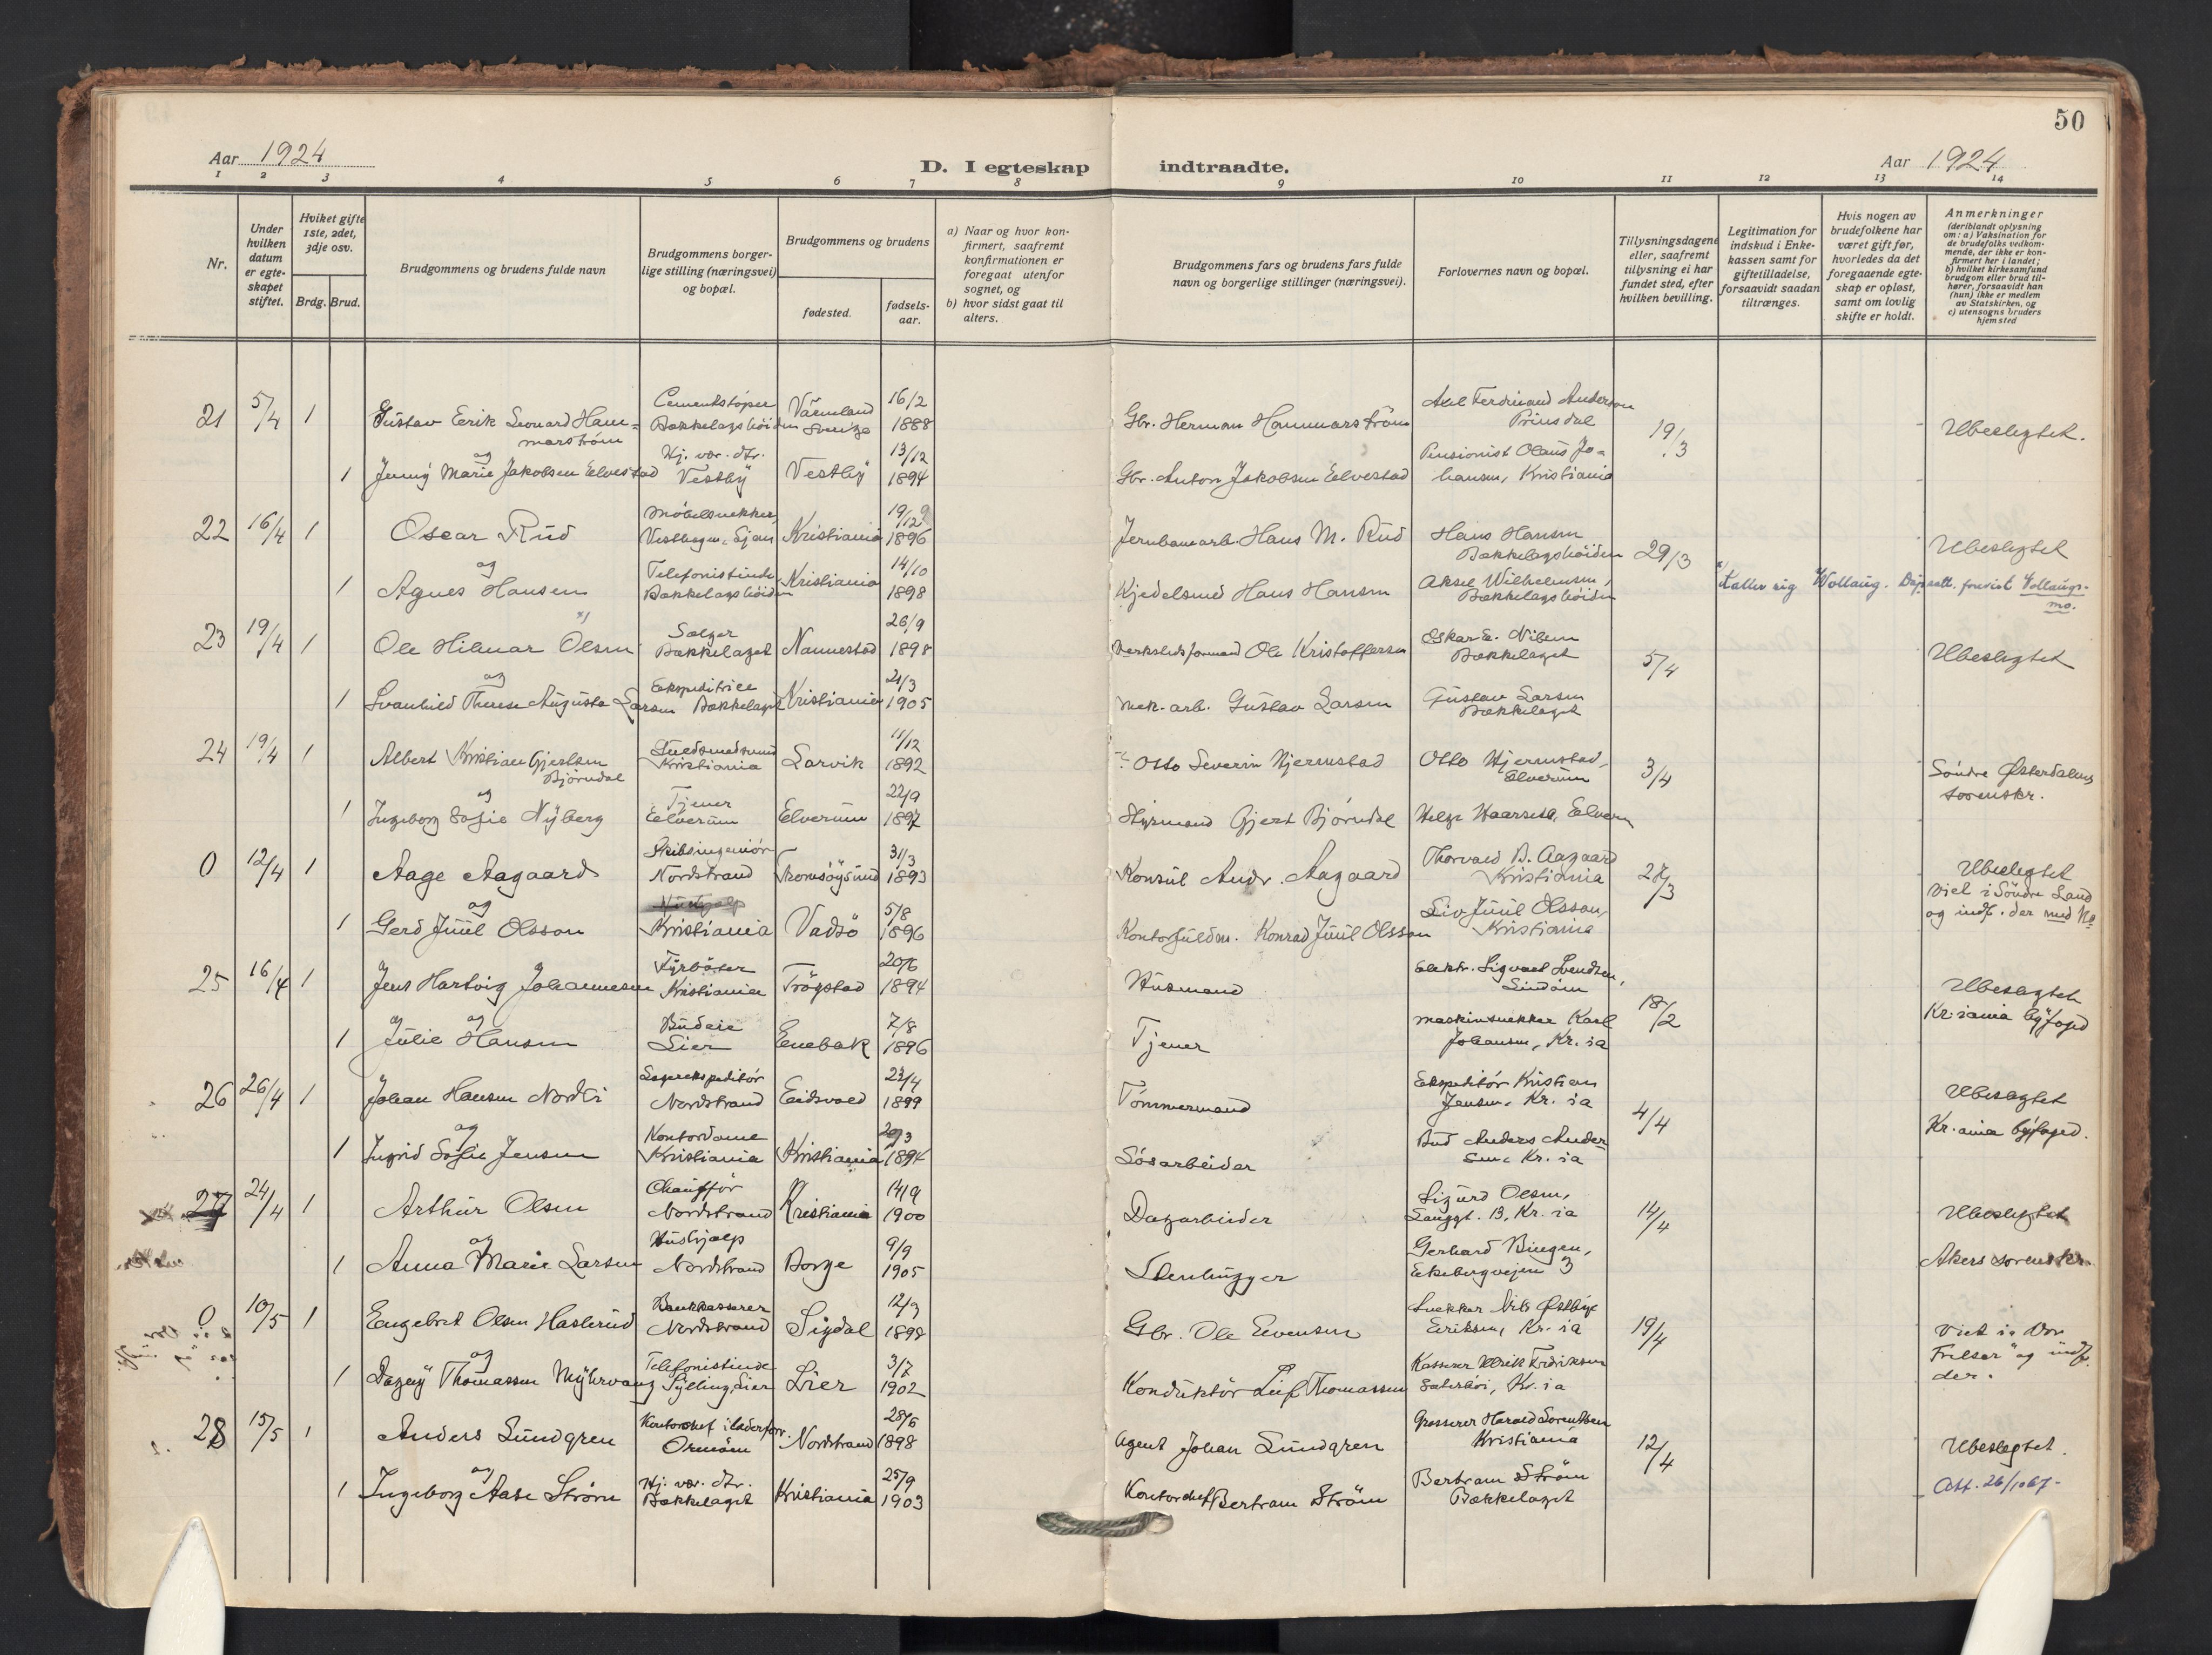 50
Aar 1924
D. I egteskap indtraadte.
Aar 1924
1 2 3 4 5 6 7 8 9 10 11 12 13 14
Nr.
Under hvilken datum er egteskapet stiftet.
Hvilket gifte 1ste, 2det, 3dje osv.
Brdg. Brud.
Brudgommens og brudens fulde navn
Brudgommens borgerlige stilling (næringsvei) og bopæl.
Brudgommens og brudens
fødested.
fødselsaar.
a) Naar og hvor konfirmert, saafremt konfirmationen er foregaat utenfor sognet, og
b) hvor sidst gaat til alters.
Brudgommens fars og brudens fars fulde navn og borgerlige stillinger (næringsvei).
Forlovernes navn og bopæl.
Tillysningsdagene eller, saafremt tillysning ei har fundet sted, efter hvilken bevilling.
Legitimation for indskud i Enkekassen samt for giftetilladelse, forsaavidt saadan tiltrænges.
Hvis nogen av brudefolkene har været gift før, hvorledes da det foregaaende egteskap er opløst, samt om lovlig skifte er holdt.
Anmerkninger (deriblandt oplysning om: a) Vaksination for de brudefolks vedkommende, der ikke er konfirmert her i landet; b) hvilket kirkesamfund brudgom eller brud tilhører, forsaavidt han (hun) ikke er medlem av Statskirken, og c) utensogns bruders hjemsted
21 5/4 1 Gustav Erik Leonard Hammarström Cementstøper Bækkelagshøiden Värmland Sverige 16/2 1888 Gbr. Herman Hammarström Axel Ferdinand Anderson Prinsdal 19/3 Ubeslegtet.
og
1 Jenny Marie Jakobsen Elvestad Hj. vær. dtr. Vestby Vestby 13/12 1894 Gbr. Anton Jakobsen Elvestad Pensionist Olaus Johansen, Kristiania
22 16/4 1 Oscar Rud Møbelsnekker, Ljan Kristiania 19/12 1896 Jernbanearb. Hans M. Rud Hans Hansen Bækkelagshøiden 29/3 Ubeslegtet
og
1 Agnes Hansen Telefonistinde Bækkelagshøiden Kristiania 14/10 1898 Kjedelsmed Hans Hansen Aksel Wilhelmsen, Bækkelagshøiden x) Kaller sig Wollaug. Dåpsatt. forevist Vollaugsmo.
23 19/4 1 Ole Hilmar Olsen x) Sælger Bækkelaget Nannestad 26/9 1898 Verkstedsformand Ole Kristoffersen Oskar E. Nilsen Bækkelaget 5/4 Ubeslegtet
og
1 Svanhild Therese Augusta Larsen Ekspeditrice Bækkelaget Kristiania 21/3 1905 Mek. arb. Gustav Larsen Gustav Larsen Bækkelaget
24 19/4 1 Albert Kristian Gjertsen Bjørndal Guldsmedsvend Kristiania Larvik 11/12 1892 Otto Severin Hjernstad Otto Hjernstad, Elverum 3/4 Søndre Østerdalens sorenskr.
og
1 Ingeborg Sofie Nyberg Tjener Elverum Elverum 22/9 1897 Styrmand Gjert Bjørndal Helge Elverum
0 12/4 1 Aage Aagaard Skibsingeniør Nordstrand Tromsøysund 31/3 1893 Konsul Andr. Aagaard Thorvald B. Aagaard Kristiania 27/3 Ubeslegtet
viet i Søndre Land og indf. der med No
og
1 Gerd Juul Olsson Kristiania Vadsø 5/8 1896 Kontorfuldm. Konrad Juul Olsson Liv Juul Olsson, Kristiania
25 16/4 1 Jens Hartvig Johannesen Fyrbøter Kristiania Trøgstad 20/6 1894 Husmand Elektr. Sigvart Svendsen, 18/2 Ubeslegtet
Kr.iania byfoged
og
1 Julie Hansen Budeie Lier Enebak 7/8 1896 Tjener Maskinsnekker Karl Johansen, Kr.ia
26 26/4 1 Johan Hansen Nordli Lagerekspeditør Nordstrand Eidsvold 23/4 1899 Tømmermand Ekspeditør Kristian Jensen, Kr.ia 4/4 Ubeslegtet
Kr.ania byfoged.
og
1 Ingrid Sofie Jensen Kontordame Kristiania Kristiania 20/3 1894 Løsarbeider Bud Anders Andersen, Kr.ia
27 24/4 1 Arthur Olsen Chauffør Nordstrand Kristiania 14/9 1900 Dagarbeider Sigurd Olsen, Langgt. 13, Kr.ia 14/4 Ubeslegtet
Akers sorenskr.
og
1 Anna Marie Larsen Hushjælp Nordstrand Borge 9/9 1905 Stenhugger Gerhard Bingen, Ekebergvejen 3
0 10/5 1 Engebret Olsen Haslerud Bankkasserer Nordstrand Sigdal 12/3 1898 Gbr. Ole Evensen Snekker Nils Østbye Eriksen, Kr.ia 19/4 Viet i "Vor Frelser" og indf. der.
og
1 Dagny Thomassen Myhrvang Telefonistinde Sylling Lier Lier 3/7 1902 Konduktør Leif Thomassen Kasserer Ulrik Fredriksen Kr.ia
28 15/5 1 Anders Lundgren Kontorchef i Ormøen Nordstrand 28/6 1898 Agent Johan Lundgren Grosserer Harald Lorentzen Kristiania 12/4 Ubeslegtet.
og
1 Ingeborg Aase Strøm Hj. vær. dtr. Bækkelaget Kristiania 25/9 1903 Kontorchef Bertram Strøm Bertram Strøm Bækkelaget Att. 26/10 67.